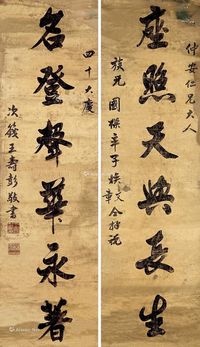 仲安仁兄大人
座照天典長生
族兄國樑率子姪文全拜祝
四十大慶
名登聲華永著
次篯王壽彭敬書